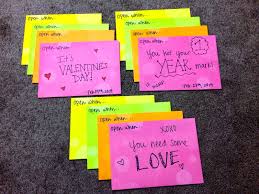 open when...
open when...
open when...
open when...
It's
VALENTINES
DAY!
open when...
open when...
open when...
open when...
You hit your
YEAR mark!
open when...
open when...
open when...
open when...
XOXO
You need some
LOVE